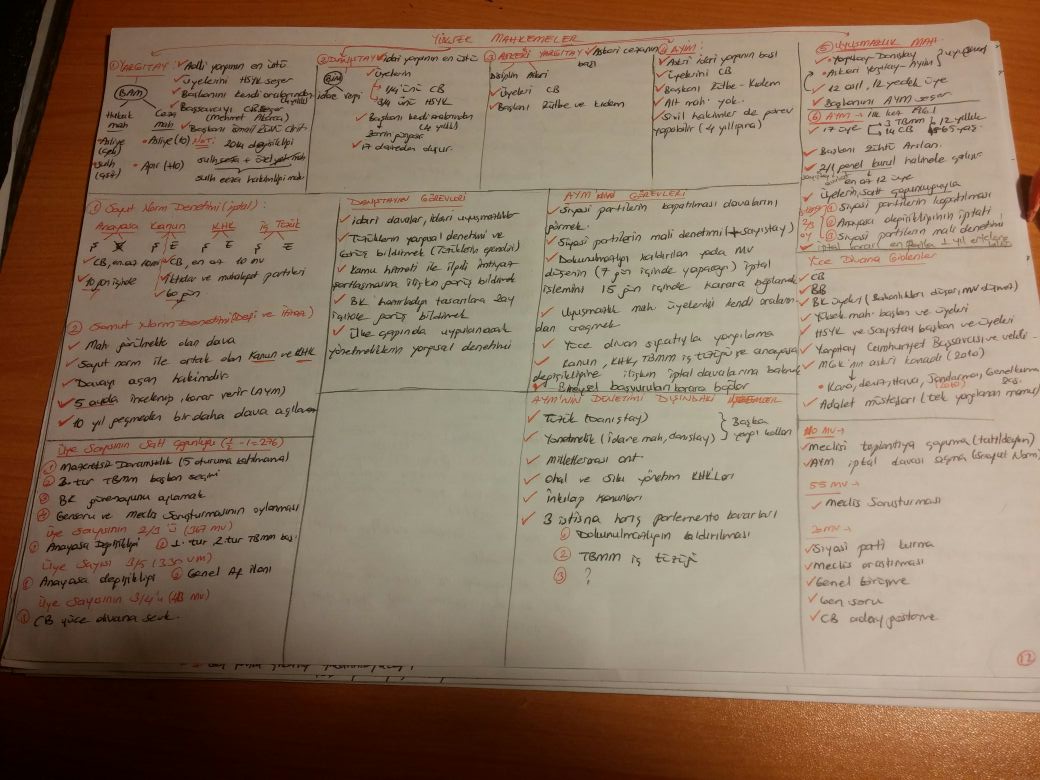 YÜKSEK MAHKEMELER
① YARGITAY
✓ Adli yargının en üstü
✓ Üyelerini HSYK seçer
✓ Başkanını kendi aralarından
(4 yıllık)
✓ Başsavcıyı CB seçer
(Mehmet Akarca)
✓ Başkanı İsmail Rüştü Cirit.
BAM
Hukuk mah
Ceza mah
• Asliye (10)
• Ağır (+10)
Not: 2014 değişikliği
sulh ceza
sulh ceza hakimliği
② DANIŞTAY
✓ idari yargının en üstü
✓ Üyelerin
1/4 ünü CB
3/4 ünü HSYK
✓ Başkanı kendi aralarından
(4 yıllık)
✓ 17 daireden oluşur.
BİM
idare vergi
③ ASKERİ YARGITAY
✓ Askeri cezanın başı
Disiplin Askeri
✓ Üyeleri CB
✓ Başkanı Rütbe ve kıdem
④ AYİM:
✓ Askeri idari yargının başı
✓ Üyelerini CB
✓ Başkanı Rütbe-Kıdem
✓ Alt mah. yok.
✓ Sivil hakimler de görev
yapabilir (4 yıllığına)
⑤ UYUŞMAZLIK MAH
• Yargıtay - Danıştay
• Askeri Yargıtay - Ayim
✓ 12 asıl, 12 yedek üye
✓ Başkanını AYM seçer
⑥ AYM → ilk kez 1961
✓ 17 üye
3 TBMM
14 CB
12 yıllık
65 yaş.
✓ Başkanı Zühtü Arslan.
✓ 2/1 panel kurul halinde çalışır.
en az 12 üye
✓ üyelerin salt çoğunluğuyla
2/3 oy
① Siyasi partilerin kapatılması
② Anayasa değişikliğinin iptali
③ Siyasi partilerin mali denetimi
✓ iptal kararı en fazla 1 yıl ertelenir
① Soyut Norm Denetimi (iptal):
Anayasa Kanun KHK iç Tüzük
Ş E Ş E Ş E Ş E
✓ CB, en az 110 mv
✓ 10 gün içinde
✓ CB, en az 110 mv
✓ iktidar ve muhalefet partileri
✓ 60 gün
② Somut Norm Denetimi (Defi ve itiraz)
✓ Mah. görülmekte olan dava
✓ Soyut norm ile ortak olan Kanun ve KHK
✓ Davayı açan hakimdir.
✓ 5 ayda inceleyip, karar verir (AYM)
✓ 10 yıl geçmeden bir daha dava açılamaz
DANIŞTAYIN GÖREVLERİ
✓ idari davalar, idari uyuşmazlıklar
✓ Tüzüklerin yargısal denetimi ve
görüş bildirmek (Tüzüklerin efendisi)
✓ Kamu hizmeti ile ilgili imtiyaz
şartlaşmasına ilişkin görüş bildirmek
✓ BK hazırladığı tasarılara 2 ay
içinde görüş bildirmek
✓ ülke çapında uygulanacak
yönetmeliklerin yargısal denetimi
AYM'NİN GÖREVLERİ
✓ Siyasi partilerin kapatılması davalarını
görmek.
✓ Siyasi partilerin mali denetimi (+ Sayıştay)
✓ Dokunulmazlığı kaldırılan yada MV
düşenin (7 gün içinde yapacağı) iptal
işlemini 15 gün içinde karara bağlamak
✓ Uyuşmazlık mah. üyeliğini kendi araların-
dan seçmek
✓ Yüce divan sıfatıyla yargılama
✓ Kanun, KHK, TBMM iç tüzüğü ve anayasa
değişikliğine ilişkin iptal davalarına bakmak
✓ Bireysel başvuruları karara bağlar
Yüce Divana Gidenler
✓ CB
✓ BB
✓ BK üyeleri (Bakanlıkları düşer, mv düşmez)
✓ Yüksek mah. başkan ve üyeleri
✓ HSYK ve Sayıştay başkan ve üyeleri
✓ Yargıtay Cumhuriyet Başsavcısı ve vekili
✓ MGK'nin askeri kanadı (2010)
• Kara, deniz, Hava, Jandarma, Genelkurmay
(2010) Baş.
✓ Adalet müsteşarı (tek yargılanan memur)
Üye Sayısının Salt Çoğunluğu (1/2 -1=276)
① Mazeretsiz Devamsızlık (5 oturuma katılmama)
② 3. tur TBMM başkan seçimi
③ BK güvenoyunu açıklamak
④ Gensoru ve Meclis Soruşturmasının oylanması
Üye Sayısının 2/3 'ü (367 mv)
① Anayasa Değişikliği ② 1. tur 2. tur TBMM baş.
Üye Sayısı 3/5 (330 mv)
① Anayasa değişikliği ② Genel Af ilanı
Üye Sayısının 3/4'ü (413 mv)
① CB yüce divana sevk.
AYM'NİN DENETİMİ DIŞINDAKİ
✓ Tüzük (Danıştay)
✓ Yönetmelik (idare mah, danıştay)
Başka
yargı kolları
✓ Milletlerarası ant.
✓ Ohal ve Sıkı yönetim KHK'ları
✓ İnkılap Kanunları
✓ 3 istisna hariç parlemento kararları
① Dokunulmazlığın kaldırılması
② TBMM iç tüzüğü
③ ?
110 MV →
✓ Meclisi toplantıya çağırma (tatildeyken)
✓ AYM iptal davası açma (Soyut Norm)
55 MV →
✓ Meclis Soruşturması
20 MV →
✓ Siyasi parti kurma
✓ Meclis araştırması
✓ Genel Görüşme
✓ Gen soru
✓ CB aday gösterme
12